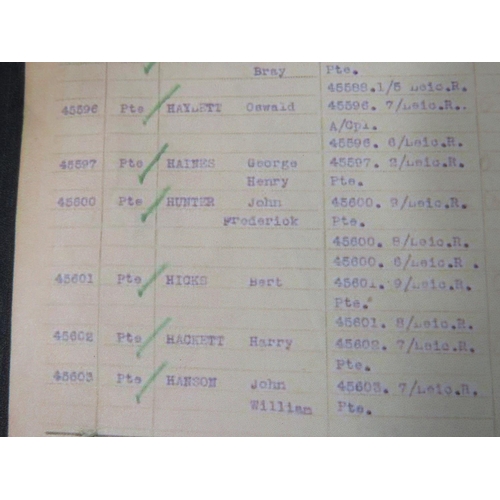 Bray Pte.
45588.1/5 Leic.R.
45596 Pte HAYLETT Oswald 45596. 7/Leic.R..
A/Cpl.
45596. 6/Leic.R.
45597 Pte HAINES George 45597. 2/Leic.R.
Henry Pte.
45600 Pte HUNTER John 45600. 9/Leic.R.
Frederick Pte.
45600. 8/Leic.R.
45600. 6/Leic.R .
45601 Pte HICKS Bert 45601. 9/Leic.R.
Pte.
45601. 8/Leic.R.
45602 Pte HACKETT Harry 45602. 7/Leic.R.
Pte.
45603 Pte HANSON John 45603. 7/Leic.R.
William Pte.